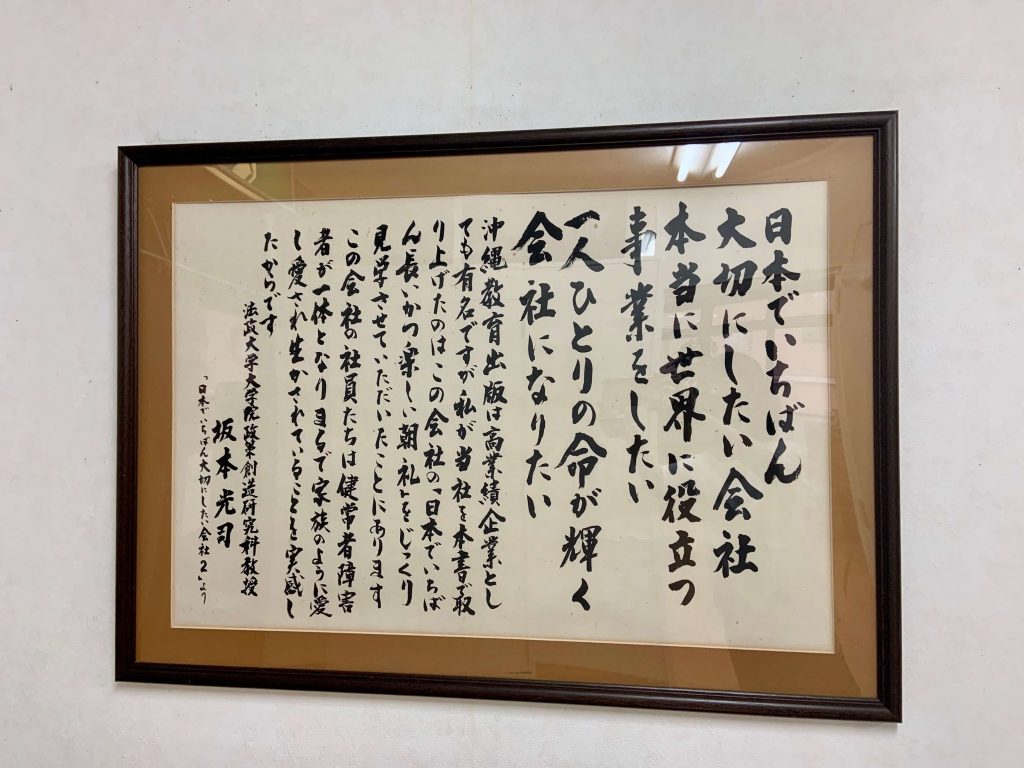 日本でいちばん
大切にしたい会社
本当に世界に役立つ
事業をしたい
一人ひとりの命が輝く
会社になりたい
沖縄教育出版は高業績企業とし
ても有名ですが、私が当社を本書で取
り上げたのはこの会社の「日本でいちば
ん長い、かつ楽しい朝礼」をじっくり
見学させていただいたことにあります
この会社の社員たちは健常者障害
者が一体となりまるで家族のように愛
し愛され生かされていることを実感し
たからです
法政大学大学院政策創造研究科教授
坂本光司
「日本でいちばん大切にしたい会社2」より